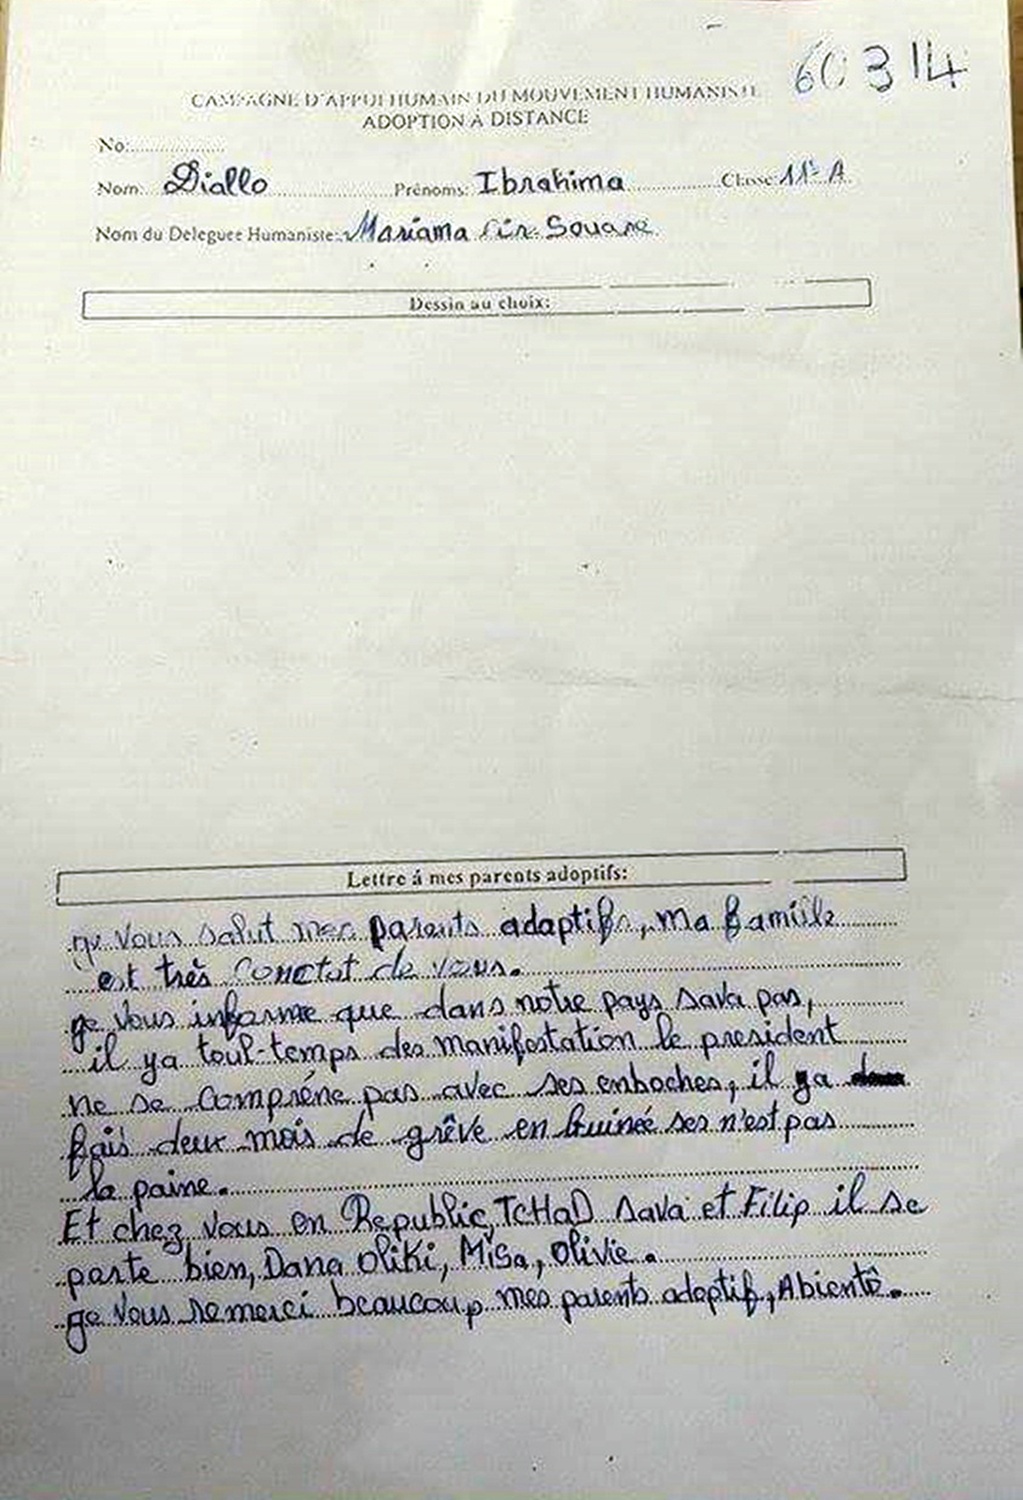 60314
CAMPAGNE D'APPUI HUMAIN DU MOUVEMENT HUMANISTE
ADOPTION A DISTANCE
No:....................
Nom: Diallo Prénoms: Ibrahima Classe 11e A
Nom du Deleguee Humaniste: Mariama Cir Souare
Dessin au choix:
Lettre á mes parents adoptifs:
ge vous salut mes parents adaptifs, ma famille
est très de vous.
ge vous informe que dans notre pays sava pas,
il ya tout-temps des manifestation le president
ne se compréne pas avec ses enboches, il ya
fais deux mois de grêve en Guinée ses n'est pas
la paine.
Et chez vous en Republic TCHaD sava et Filip il se
parte bien, Dana Oliki, Misa, Olivie.
ge vous remerci beaucoup mes parents adoptif, Abientô.